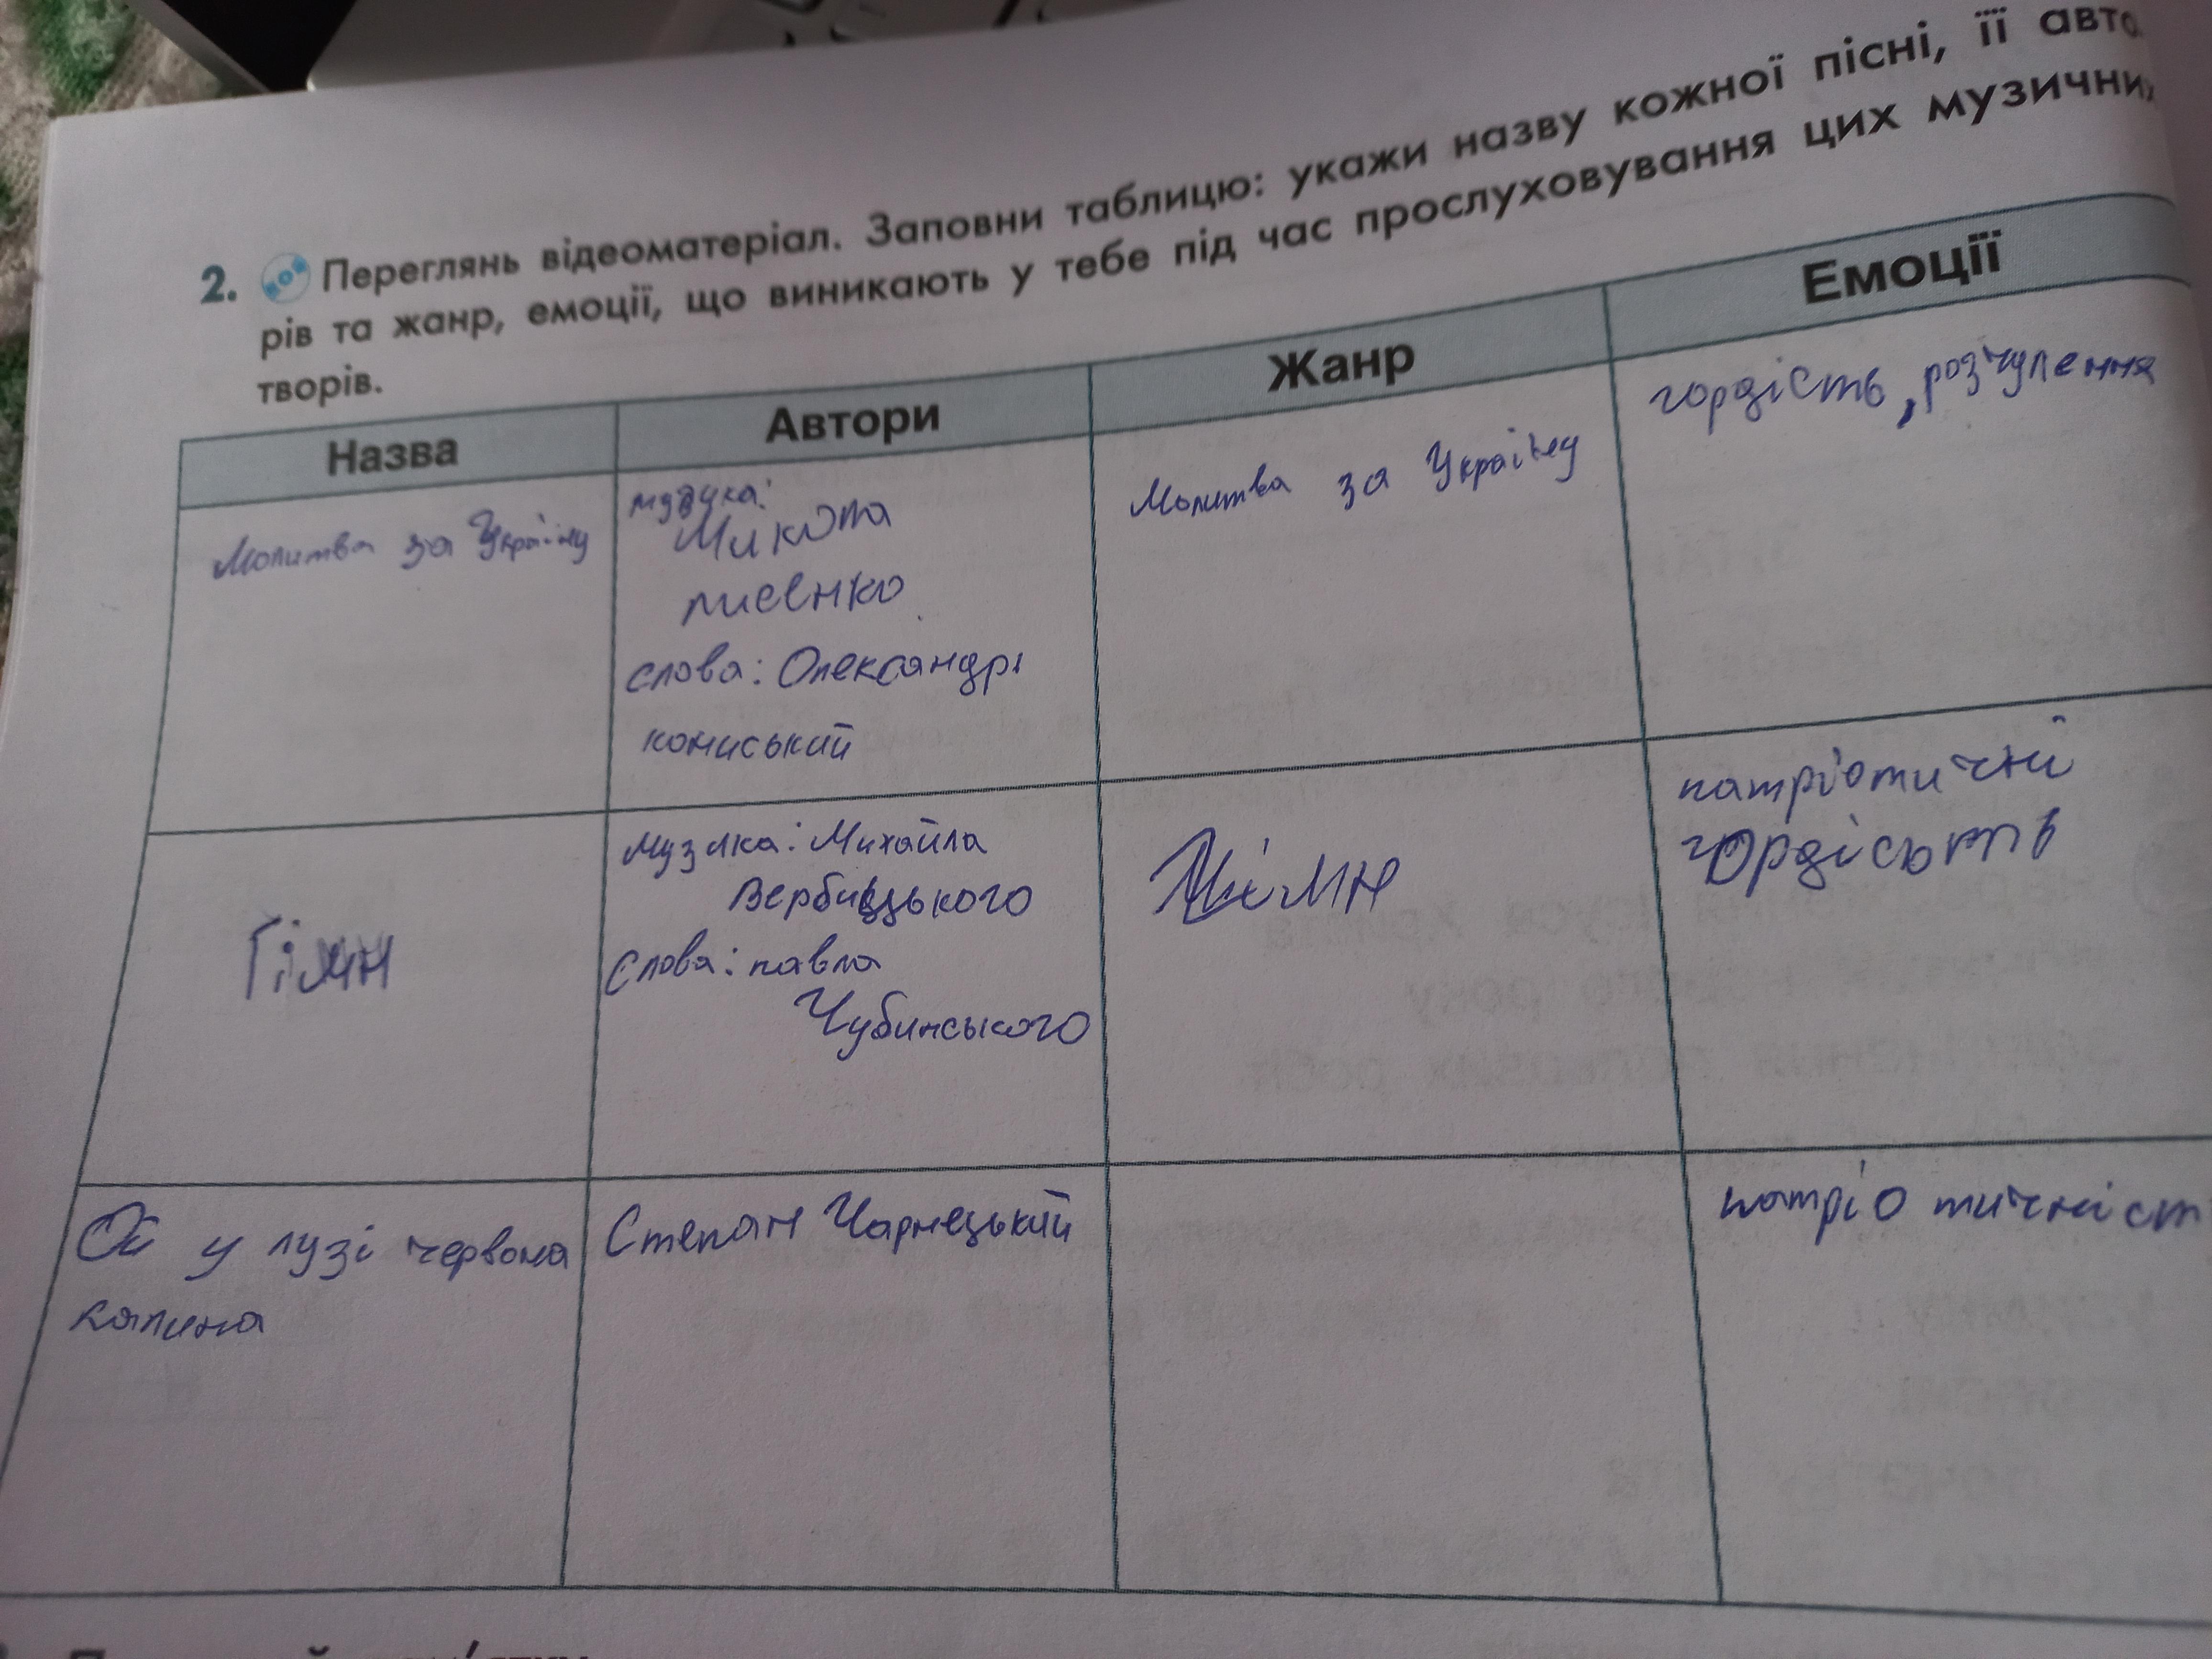 2. Переглянь відеоматеріал. Заповни таблицю: укажи назву кожної пісні, її авто
рів та жанр, емоції, що виникають у тебе під час прослуховування цих музични
творів.
Назва Автори Жанр Емоції
Молитва за Україну
музика:
Микола
лисенко
слова: Олександр
кониський
Молитва за Україну
гордість, розчулення
Гімн
Музика: Михайла
Вербицького
Слова: павла
Чубинського
Гімн
патріотичний
гордісьть
Ой у лузі червона
калина
Степан Чарнецький
патріотичніст